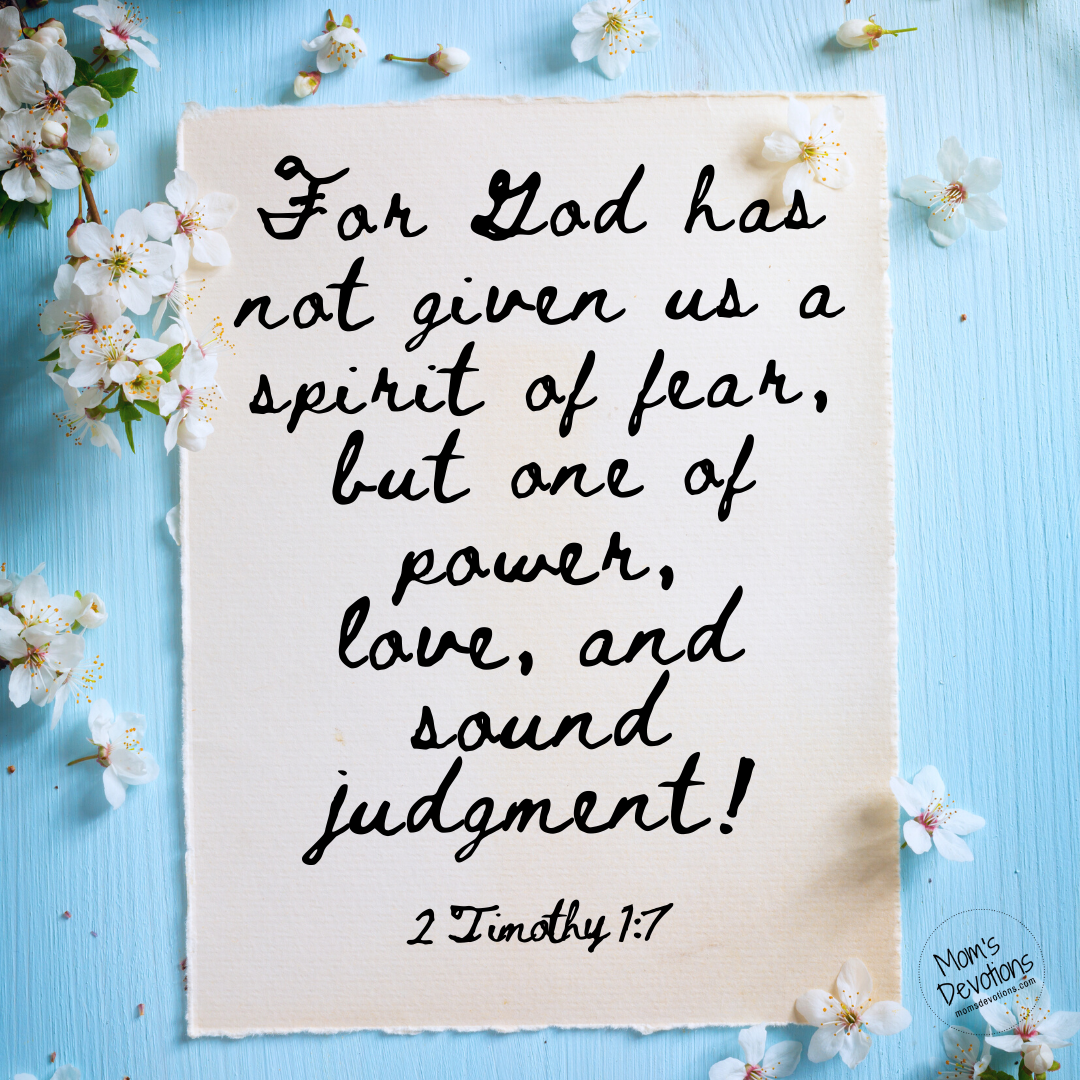 For God has
not given us a
spirit of fear,
but one of
power,
love, and
sound
judgment!
2 Timothy 1:7
Mom's
Devotions
momsdevotions.com